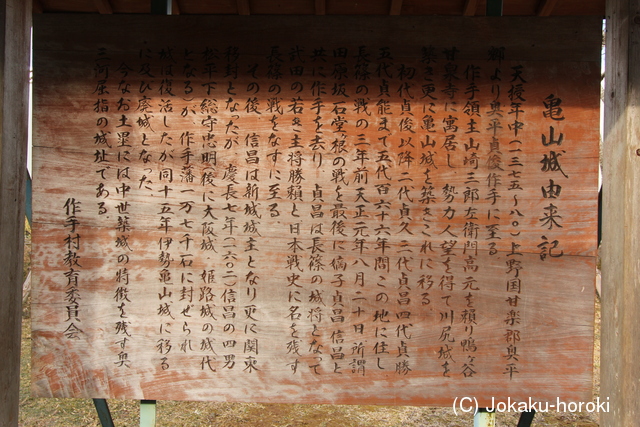 亀山城由来記
天授年中(一三七五〜八〇)上野国甘楽郡奥平
郷より奥平貞俊作手に至る
作手領主山崎三郎左衛門高元を頼り鴨ヶ谷
甘泉寺に寓居し勢力人望を得て川尻城を
築き更に亀山城を築きこれに移る
初代貞俊以降二代貞久三代貞昌四代貞勝
五代貞能まで五代百六十六年間この地に住し
長篠の戦の三年前天正元年八月二十日所謂
田原坂石堂ヶ根の戦を最後に嫡子貞昌信昌と
共に作手を去り、貞昌は長篠の城将となって
武田の若き主将勝頼と日本戦史に名を残す
長篠の戦をなすに至る。
その後、信昌は新城城主となり更に関東
移封となったが、慶長七年(一六〇二)信昌の四男
松平下総守忠明(後に大阪城、姫路城の城代
となる)が、作手藩一万七千石に封ぜられ
城は復活したが同十五年伊勢亀山城に移る
に及び廃城となった
今なお土塁には中世築城の特徴を残す奥
三河屈指の城址である。
作手村教育委員会
(C) Jokaku-horoki